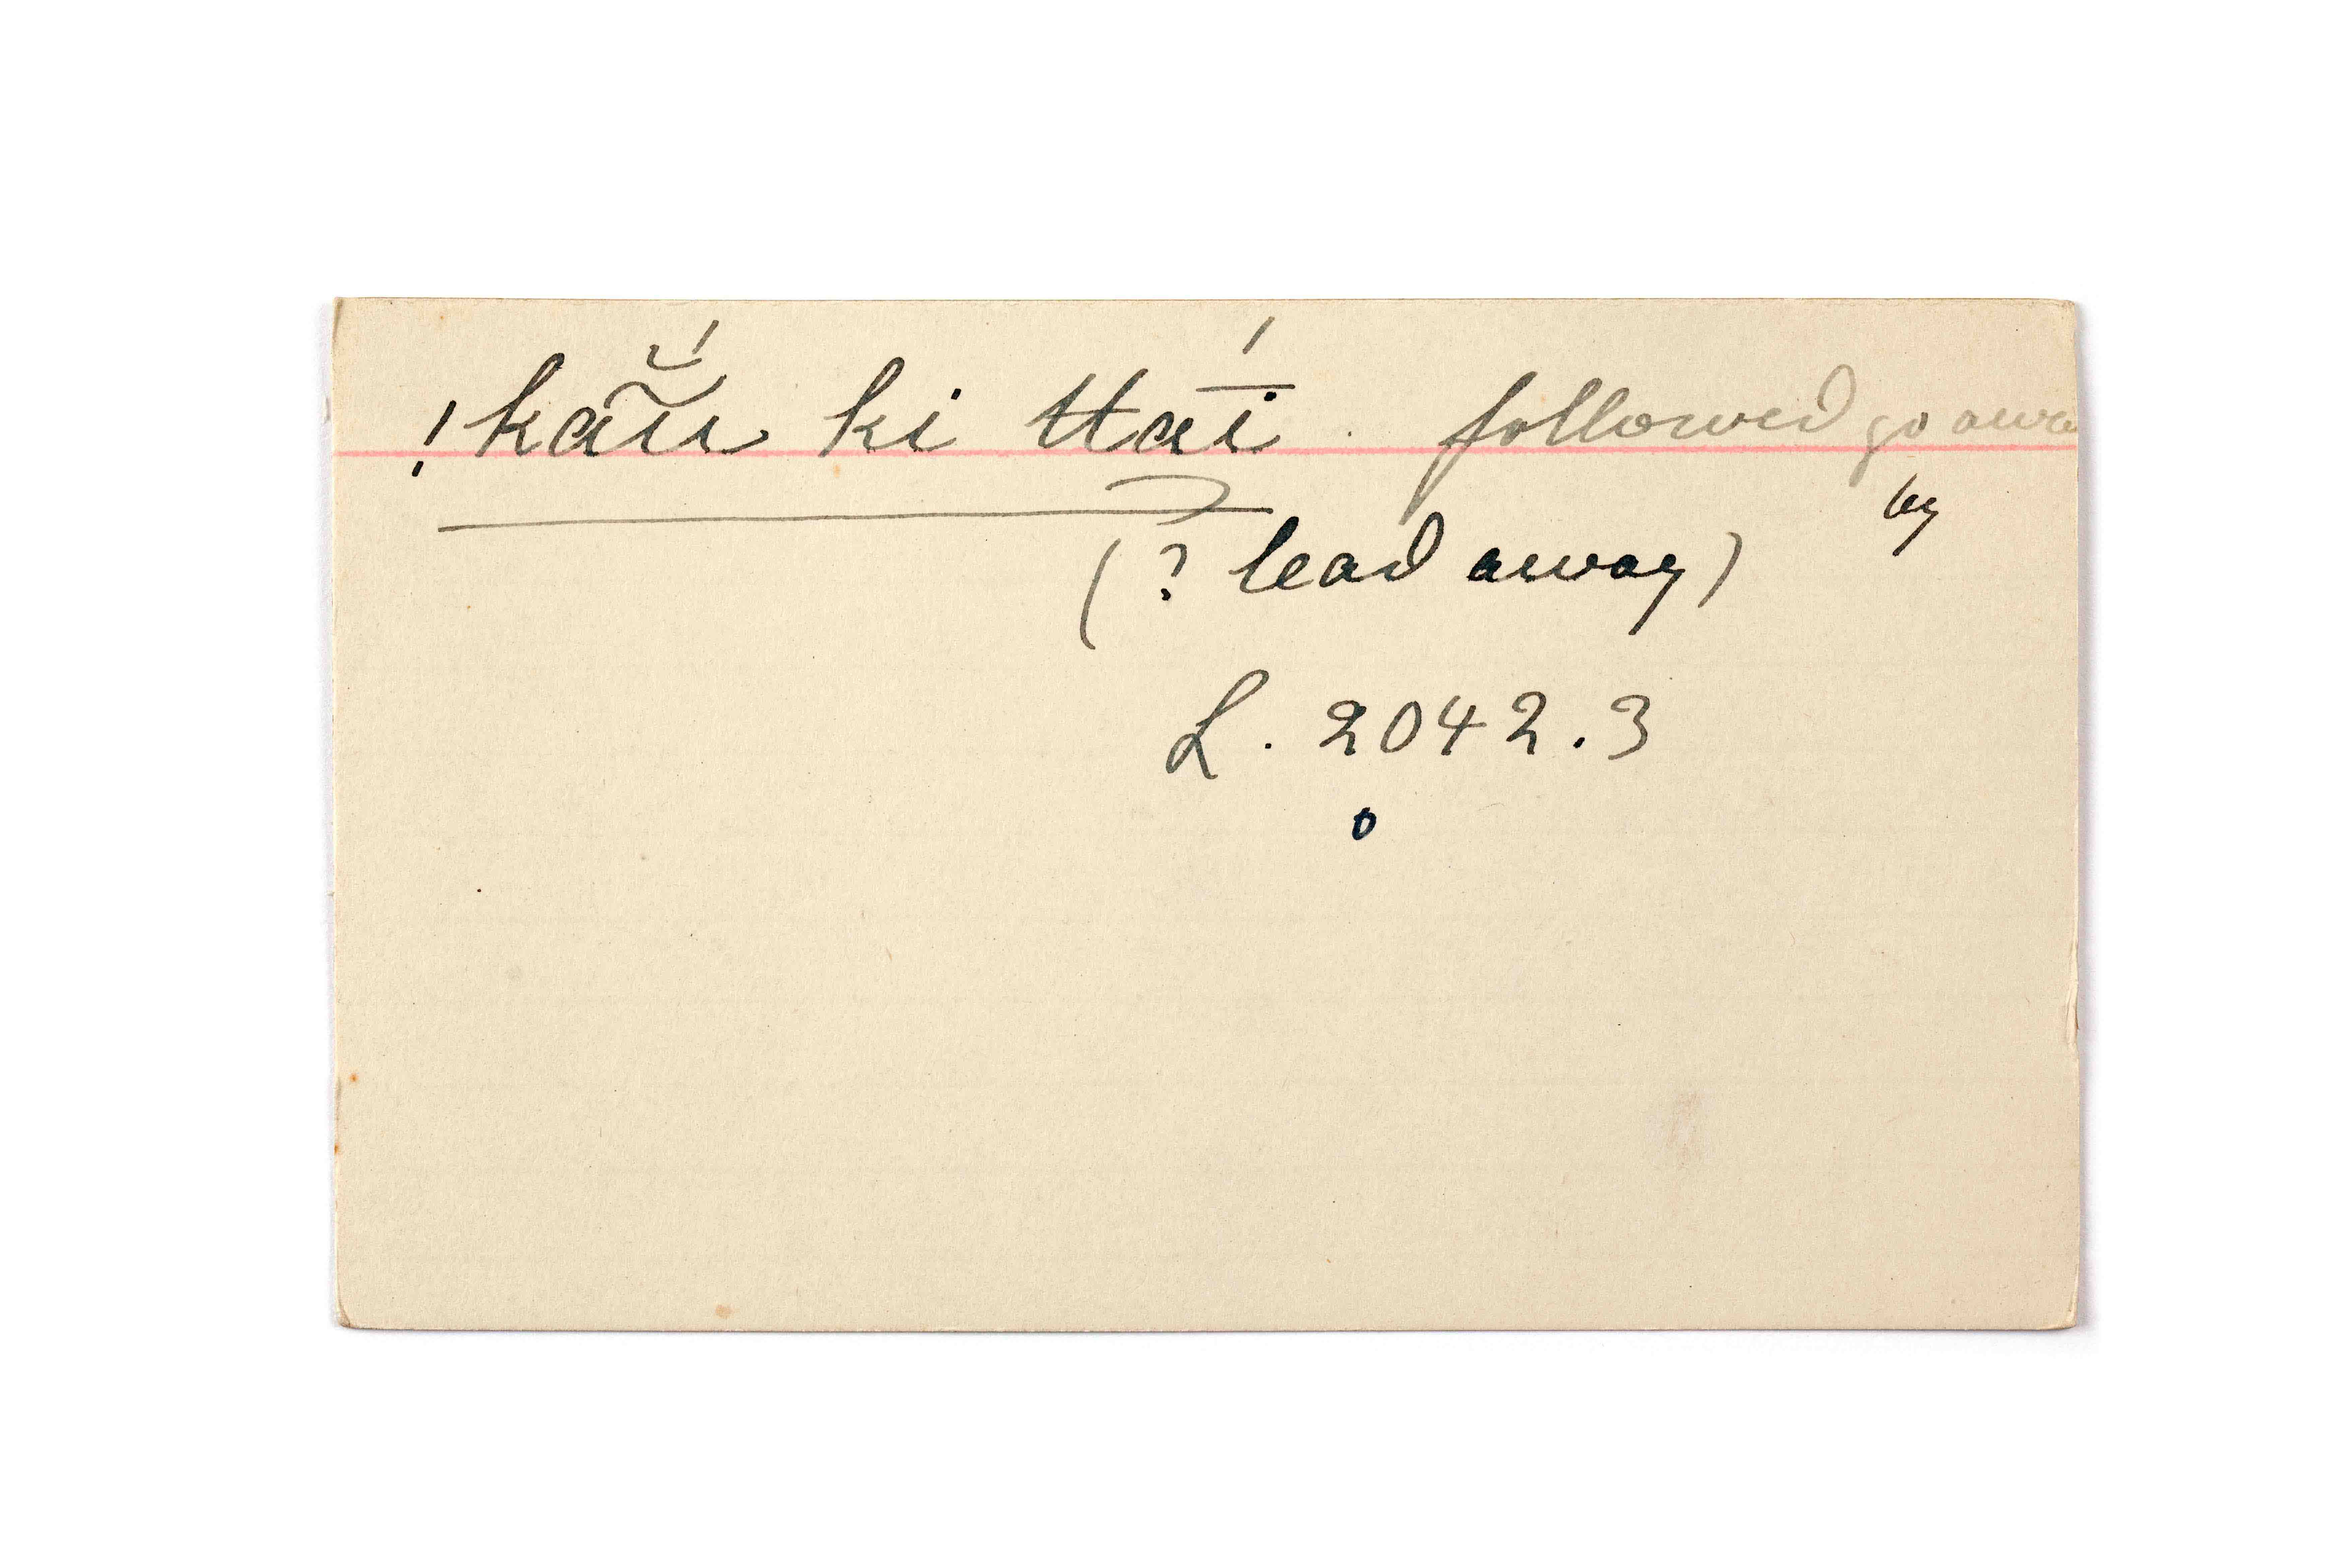 !kaṹ̯n ki ttā́i . followed go away
by
(? lead away)
L. 2042.3
o